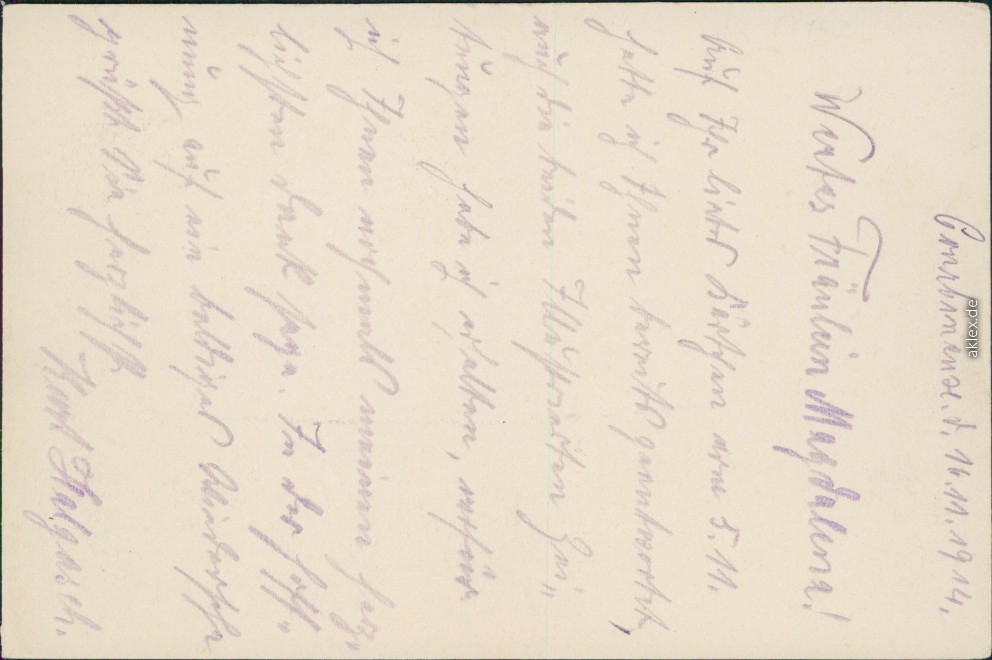 Courtmance. d. 16.11.1914.
Wertes Fräulein Magdalena!
Auf Ihr liebes Kärtchen vom 5.11.
hatte ich Ihnen bereits geantwortet,
auch die beiden Illustrierten Zei„
tungen habe ich erhalten, wofür
ich Ihnen nochmals meinen herz„
lichsten Dank sage. In der Hoff„
nung auf ein baldiges Wiedersehn
grüßt Sie herzlichst
Kurt Halgasch.
aklex.de